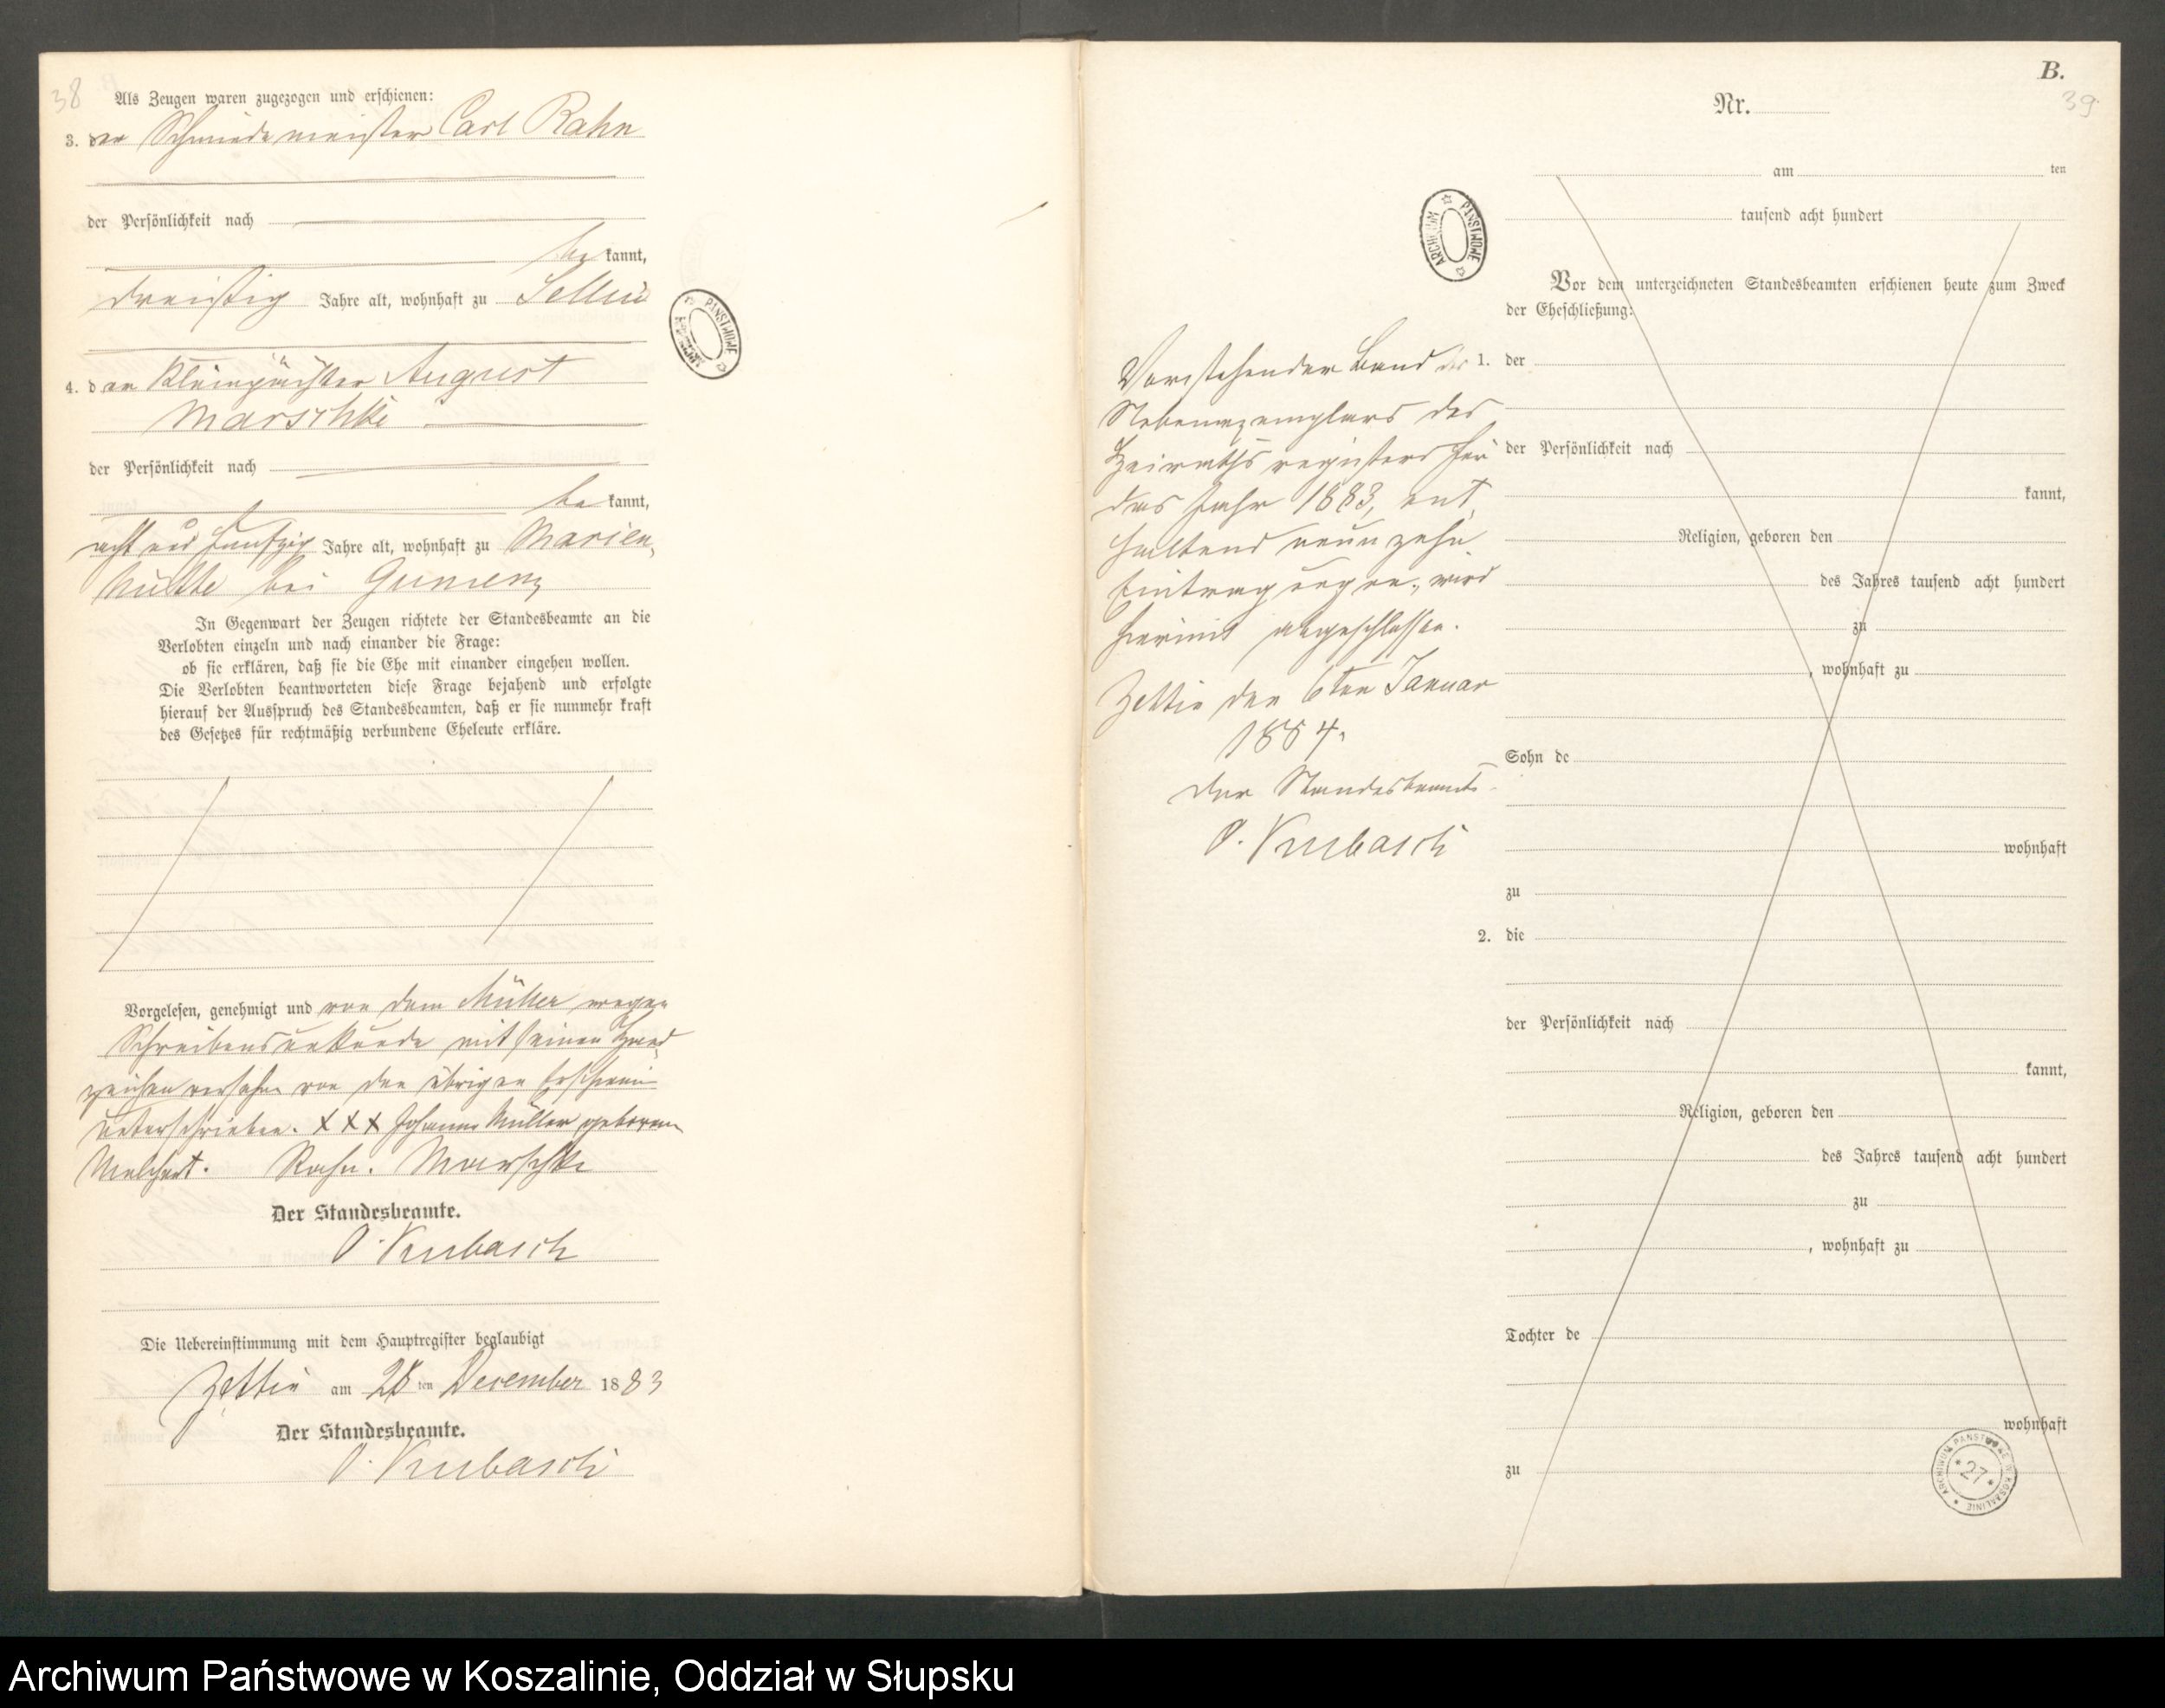 38
Als Zeugen waren zugezogen und erschienen:
3. der Schmiedemeister Carl Rahn
der Persönlichkeit nach
be kannt,
dreißig Jahre alt, wohnhaft zu Sellin
4. der Kleinpächter August
Marschke
der Persönlichkeit nach
be kannt,
acht und fünfzig Jahre alt, wohnhaft zu Marien-
hütte bei Gumenz
In Gegenwart der Zeugen richtete der Standesbeamte an die
Verlobten einzeln und nach einander die Frage:
ob sie erklären, daß sie die Ehe mit einander eingehen wollen.
Die Verlobten beantworteten diese Frage bejahend und erfolgte
hierauf der Ausspruch des Standesbeamten, daß er sie nunmehr kraft
des Gesetzes für rechtmäßig verbundene Eheleute erkläre.
Vorgelesen, genehmigt und von dem Müller wegen
Schreibensunkunde mit seinen Hand-
zeichen versehn von den übrigen Erschienen
unterschrieben. XXX Johanne Müller geborene
Melchert. Rahn. Marschke
Der Standesbeamte.
O. Kubasch
Die Uebereinstimmung mit dem Hauptregister beglaubigt
Zettin am 28 ten December 1883
Der Standesbeamte.
O. Kubasch
ARCHIWUM PAŃSTWOWE
B.
39
Nr.
am ten
tausend acht hundert
Vor dem unterzeichneten Standesbeamten erschienen heute zum Zweck
der Eheschließung:
1. der
der Persönlichkeit nach
kannt,
Religion, geboren den
des Jahres tausend acht hundert
zu
, wohnhaft zu
Sohn de
wohnhaft
zu
2. die
der Persönlichkeit nach
kannt,
Religion, geboren den
des Jahres tausend acht hundert
zu
, wohnhaft zu
Tochter de
wohnhaft
zu
ARCHIWUM PAŃSTWOWE
Vorstehender Band des
Nebenexemplars des
Heirathsregisters für
das Jahr 1883, ent-
haltend neunzehn
Eintragungen, wird
hiermit abgeschlossen.
Zettin den 6ten Januar
1884.
Der Standesbeamte.
O. Kubasch
ARCHIWUM PAŃSTWOWE W KOSZALINIE
27
Archiwum Państwowe w Koszalinie, Oddział w Słupsku